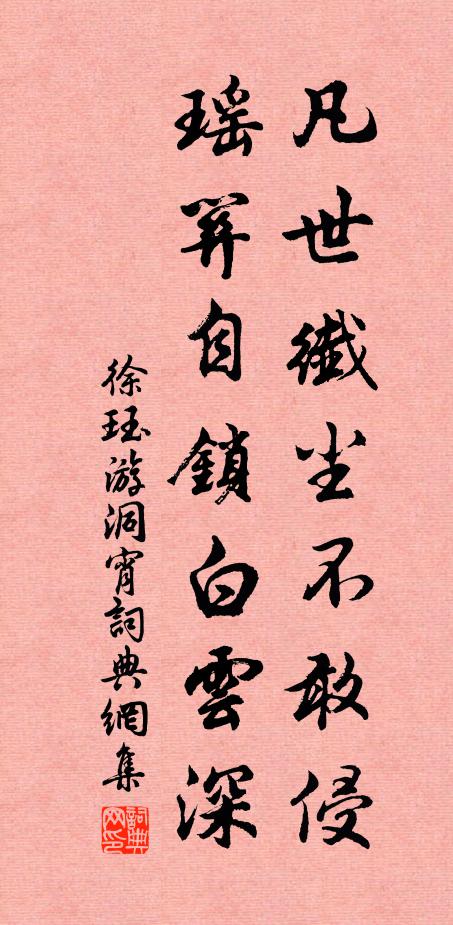 凡世纖尘不敢侵
瑶笄自鎖白雲深
徐珏游洞宵詞典網集
詞典网印